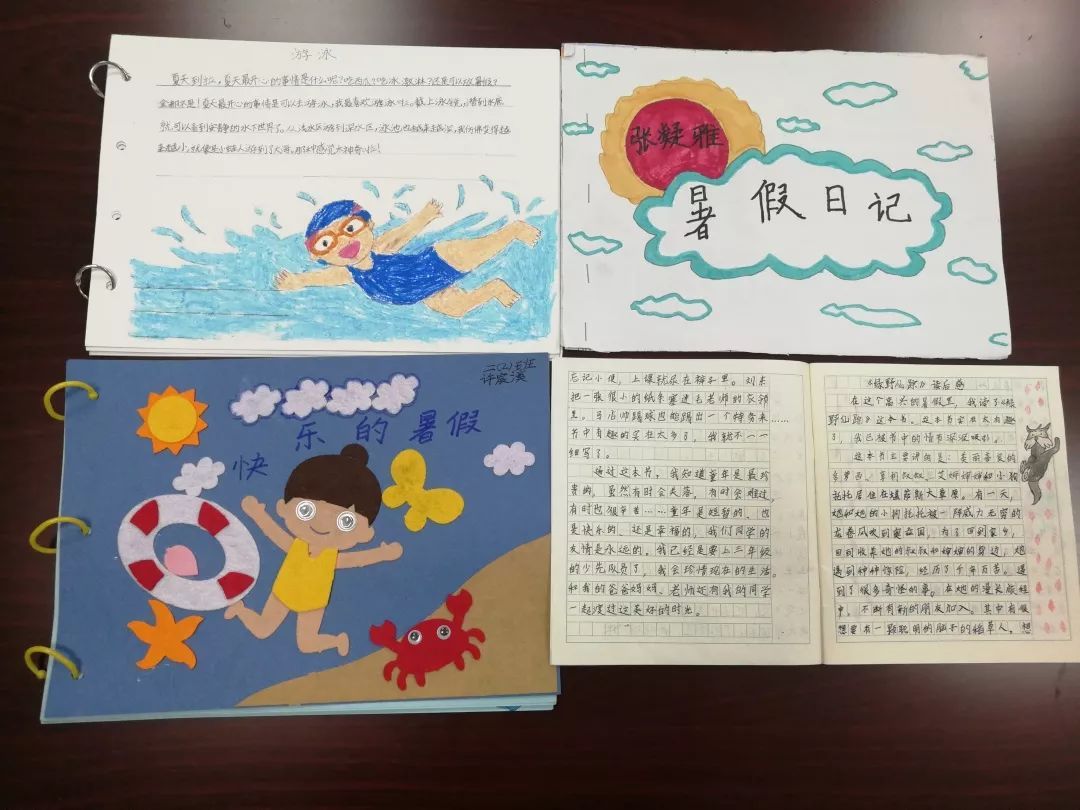 游泳
夏天到啦,夏天最开心的事情是什么呢?吃西瓜?吃冰淇淋?还是可以放暑假?
全都不是!夏天最开心的事情是可以去游泳,我最喜欢游泳啦。戴上泳镜,潜到水底
就可以看到安静的水下世界了。从浅水区游到深水区,泳池也越来越深,我仿佛变得越
来越小,就像是小人游到了大海。那种感觉太神奇啦!
张凝雅
暑假日记
二(2)班
许宸溪
快乐的暑假
忘记小便,上课就尿在裤子里。刘杰
把一张很小的纸条塞进毛老师的衣领
里。马店帅踢球因能踢出一个特务来……
书中有趣的实在太多了,我就不一一
细写了。
通过这本书,我知道童年是最珍
贵的,虽然有时会失落,有时会难过,
有时也很辛苦……童年是短暂的、也
是快乐的、还是幸福的,我们同学的
友情是永远的。我已经是要上三年级
的少先队员了,我会珍惜现在的生活。
和我的爸爸妈妈、老师还有我的同学
一起度过这美好的时光。
《绿野仙踪》读后感
在这个高兴的暑假里,我读了《绿
野仙踪》这本书。这本书实在太有趣
了,我已被书中的情节深深吸引。
这本书主要讲的是:美丽善良的
多萝西、亨利叔叔、艾姆婶婶和小狗
托托居住在堪萨斯大草原。有一天,
她和她的小狗托托被一阵威力无穷的
龙卷风吹到奥兹国,为了回到家乡,
回到收养她的叔叔和婶婶的身边,她
遇到种种惊险,经历了千辛万苦。遇
到了很多奇怪的事。在她的漫长旅程
中,不断有新的朋友加入。其中有很
想要有一颗聪明的脑子的稻草人,想